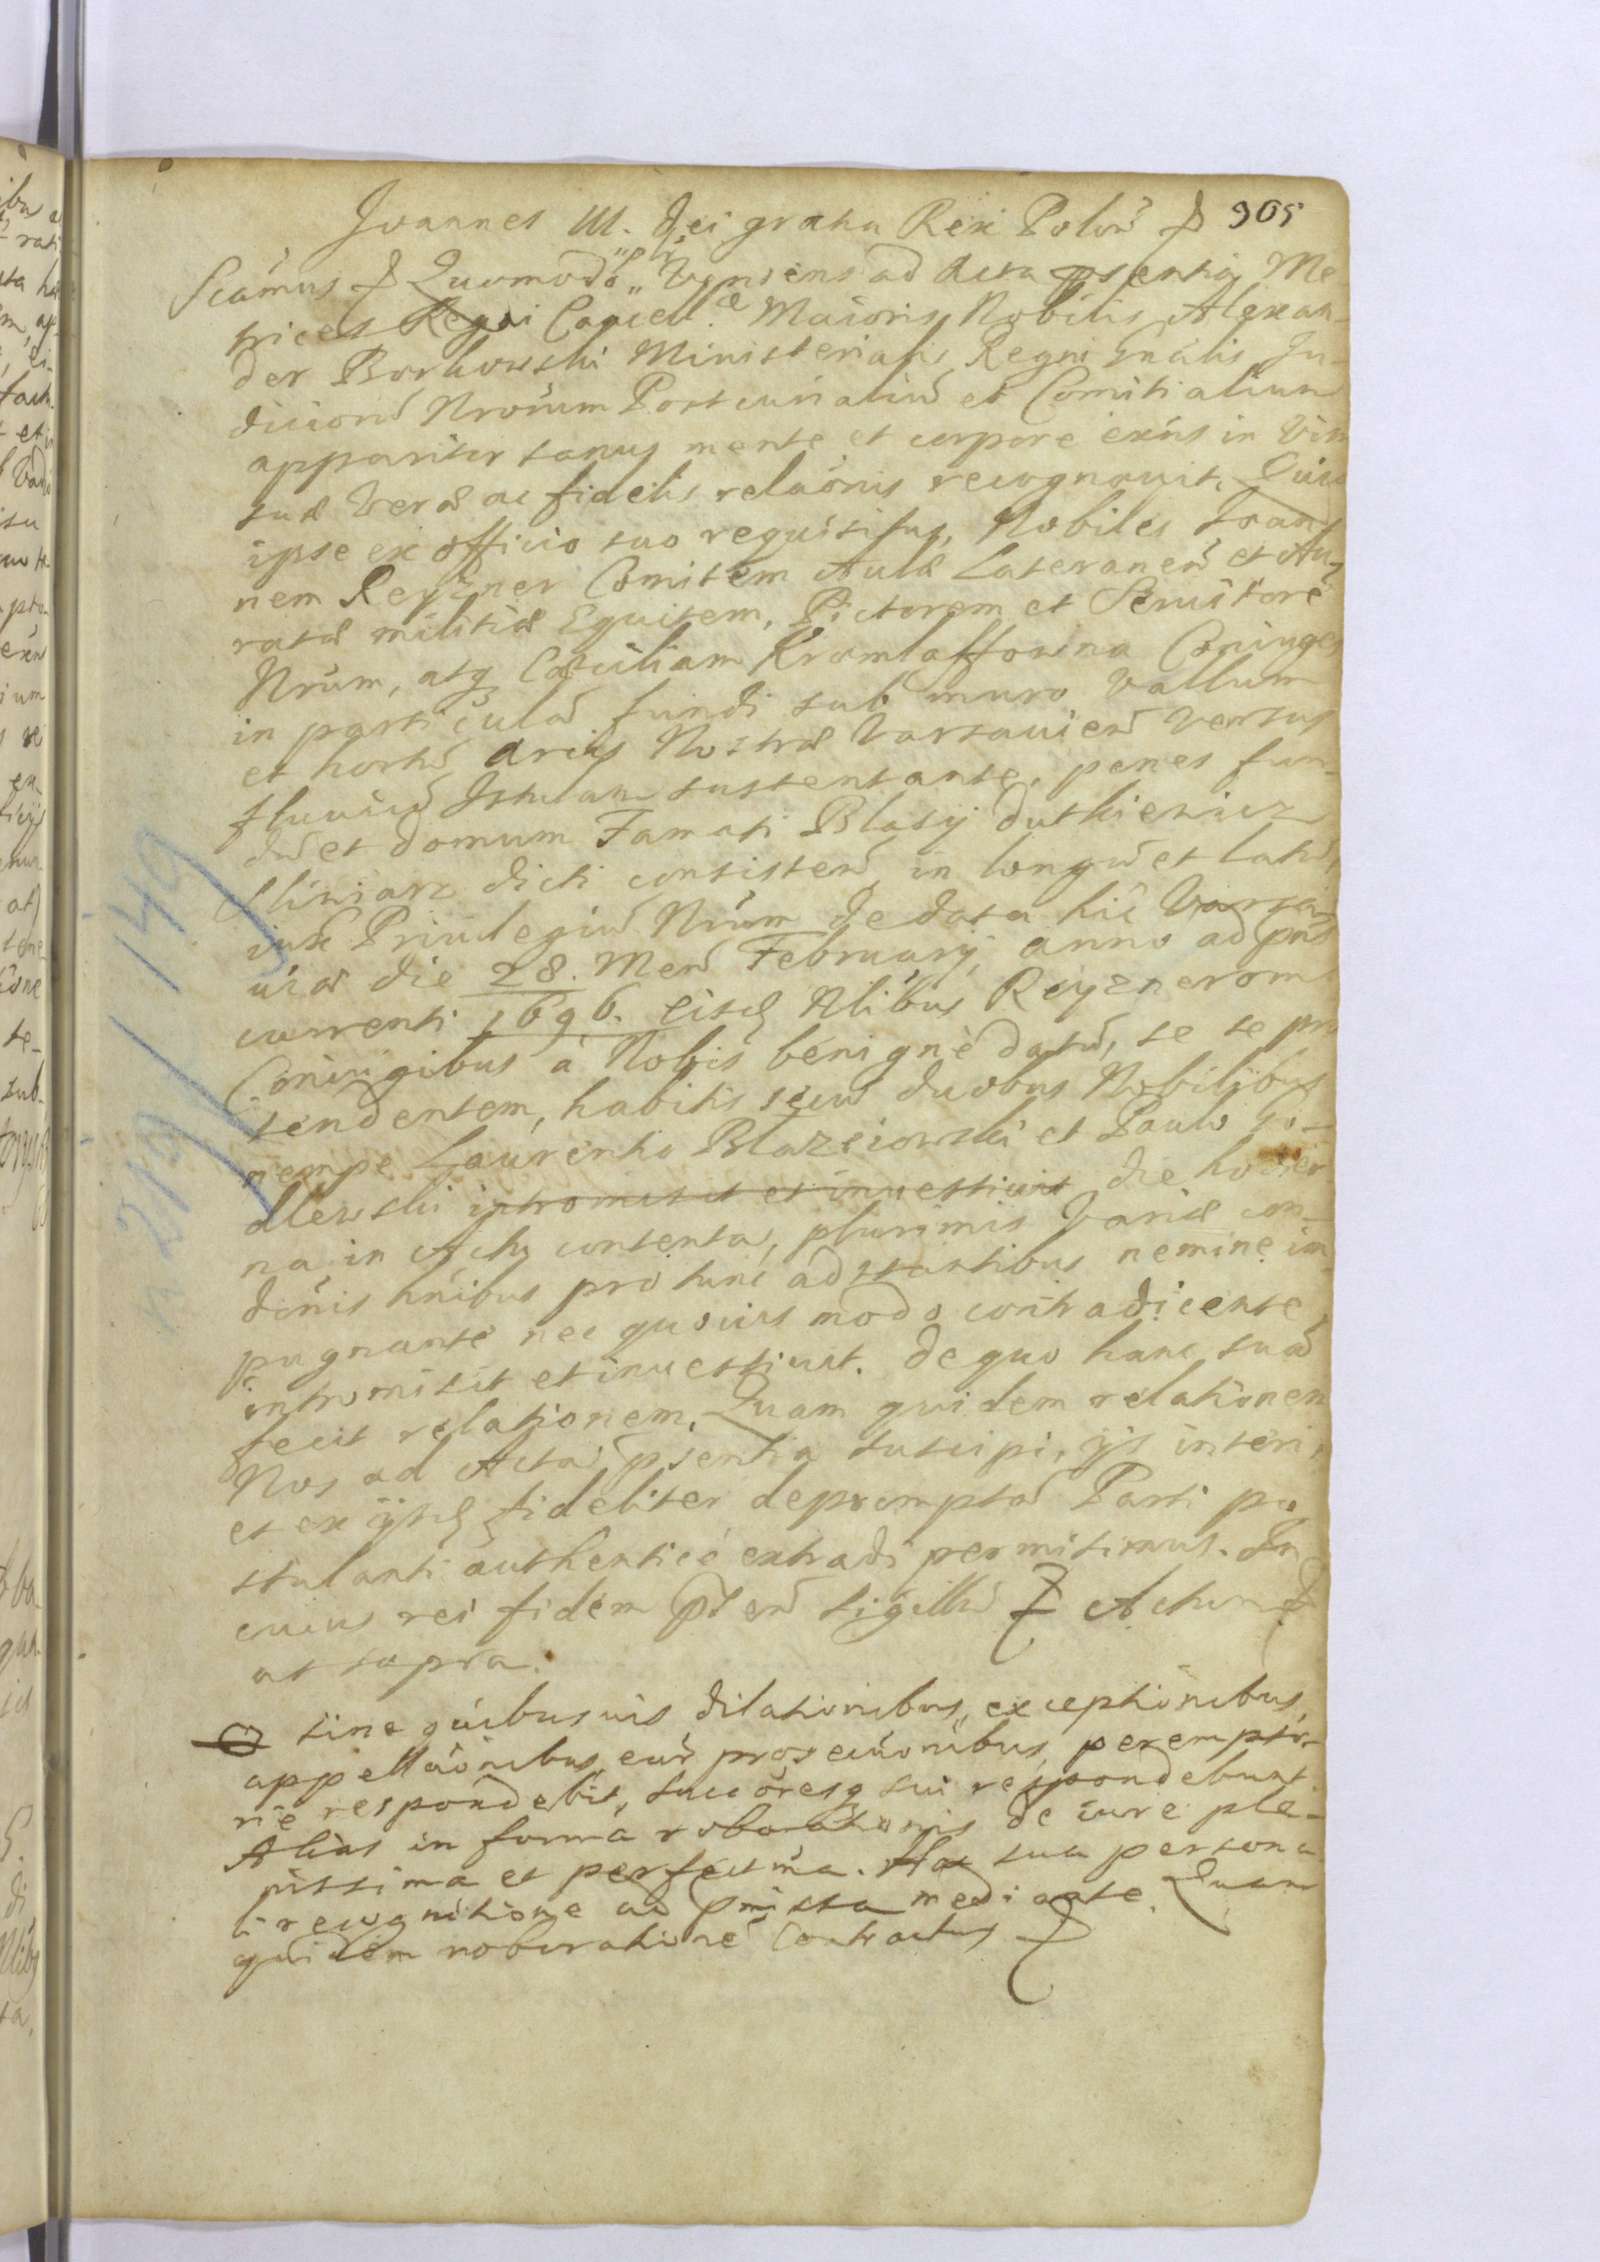 Joannes III. Dei gratia Rex Polon̄ 905
Scāmus Quomodo Veniens ad Acta psentia Me
trices Regni Cancell. Maioris Nobilis Alexan-
der Borkowski Ministerialis Regni Gnālis Ju-
diciorū Nrorum Postcurialiū et Comitialium
apparitor sanus mente et corpore exns in Vim
suæ Veræ ac fidelis relaōnis recognovit, Quia
ipse ex officio suo requisitus, Nobiles Joan
nem Reyzner Comitem Aulæ Lateranen̄ et Au
ratæ militiæ Equitem, Pictorem et Servitorē
Nrum, atq Cæciliam Kromlaffowna Coniuges
in particulā fundi sub muro Vallum
et hortū Arcis Nostræ Varsavien̄ versus
fluviū Istulam sustentante, penes fun-
dū et domum Famati Blasij Dutkiewicz
Sliwiarz dicti consisten̄ in longū et latū,
iux Privilegiū Nrum de data hic Varsa-
viæ die 28. Men̄ February anno ad pns
currenti 1696. eisd Nlibus Reyznerom
Coniugibus a Nobis benignè datū, se se pro
tendentem, habitis secū duobus Nobilibus
nempe Laurentio Blazeiowski et Paulo Go-
dlewski intromisit et investivit die hodier
na in Actis contenta, plurimis Variæ con-
dōnis hnibus pro tunc adstantibus nemine im
pugnante nec quovis modo contradicente
intromisit et investivit. De quo hanc suā
fecit relationem. Quam quidem relationem
Nos ad Acta psentia suscipi, ijs inseri,
et ex ijsd fideliter depromptā Parti po
stulanti authenticè extradi permisimus. In
cuius rei fidem psen̄ sigillū Actum
ut supra.
sine quibusvis dilationibus, exceptionibus,
appellaōnibus, earū prosecuōnibus, perempto-
rie respondebit, succoresq sui respondebunt.
Alias in forma roborationis de iure ple-
nissima et perfectma. Hac sua persona
li recognitione ad pmissa mediante. Quam
quidem roborationē Contractus
n 219/149